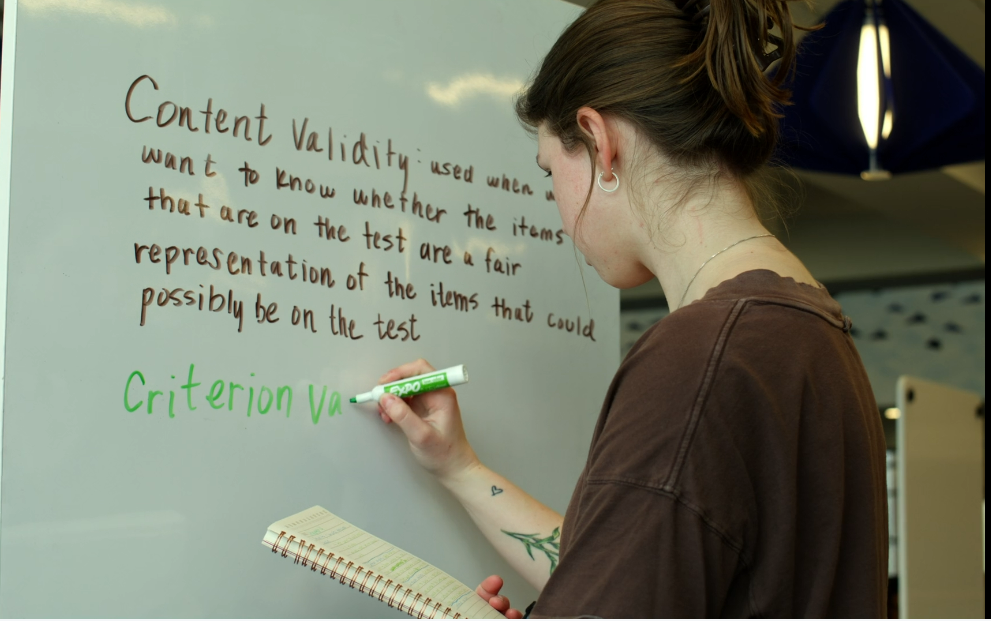 Content Validity: used when
want to know whether the items
that are on the test are a fair
representation of the items that could
possibly be on the test
Criterion Va
EXPO